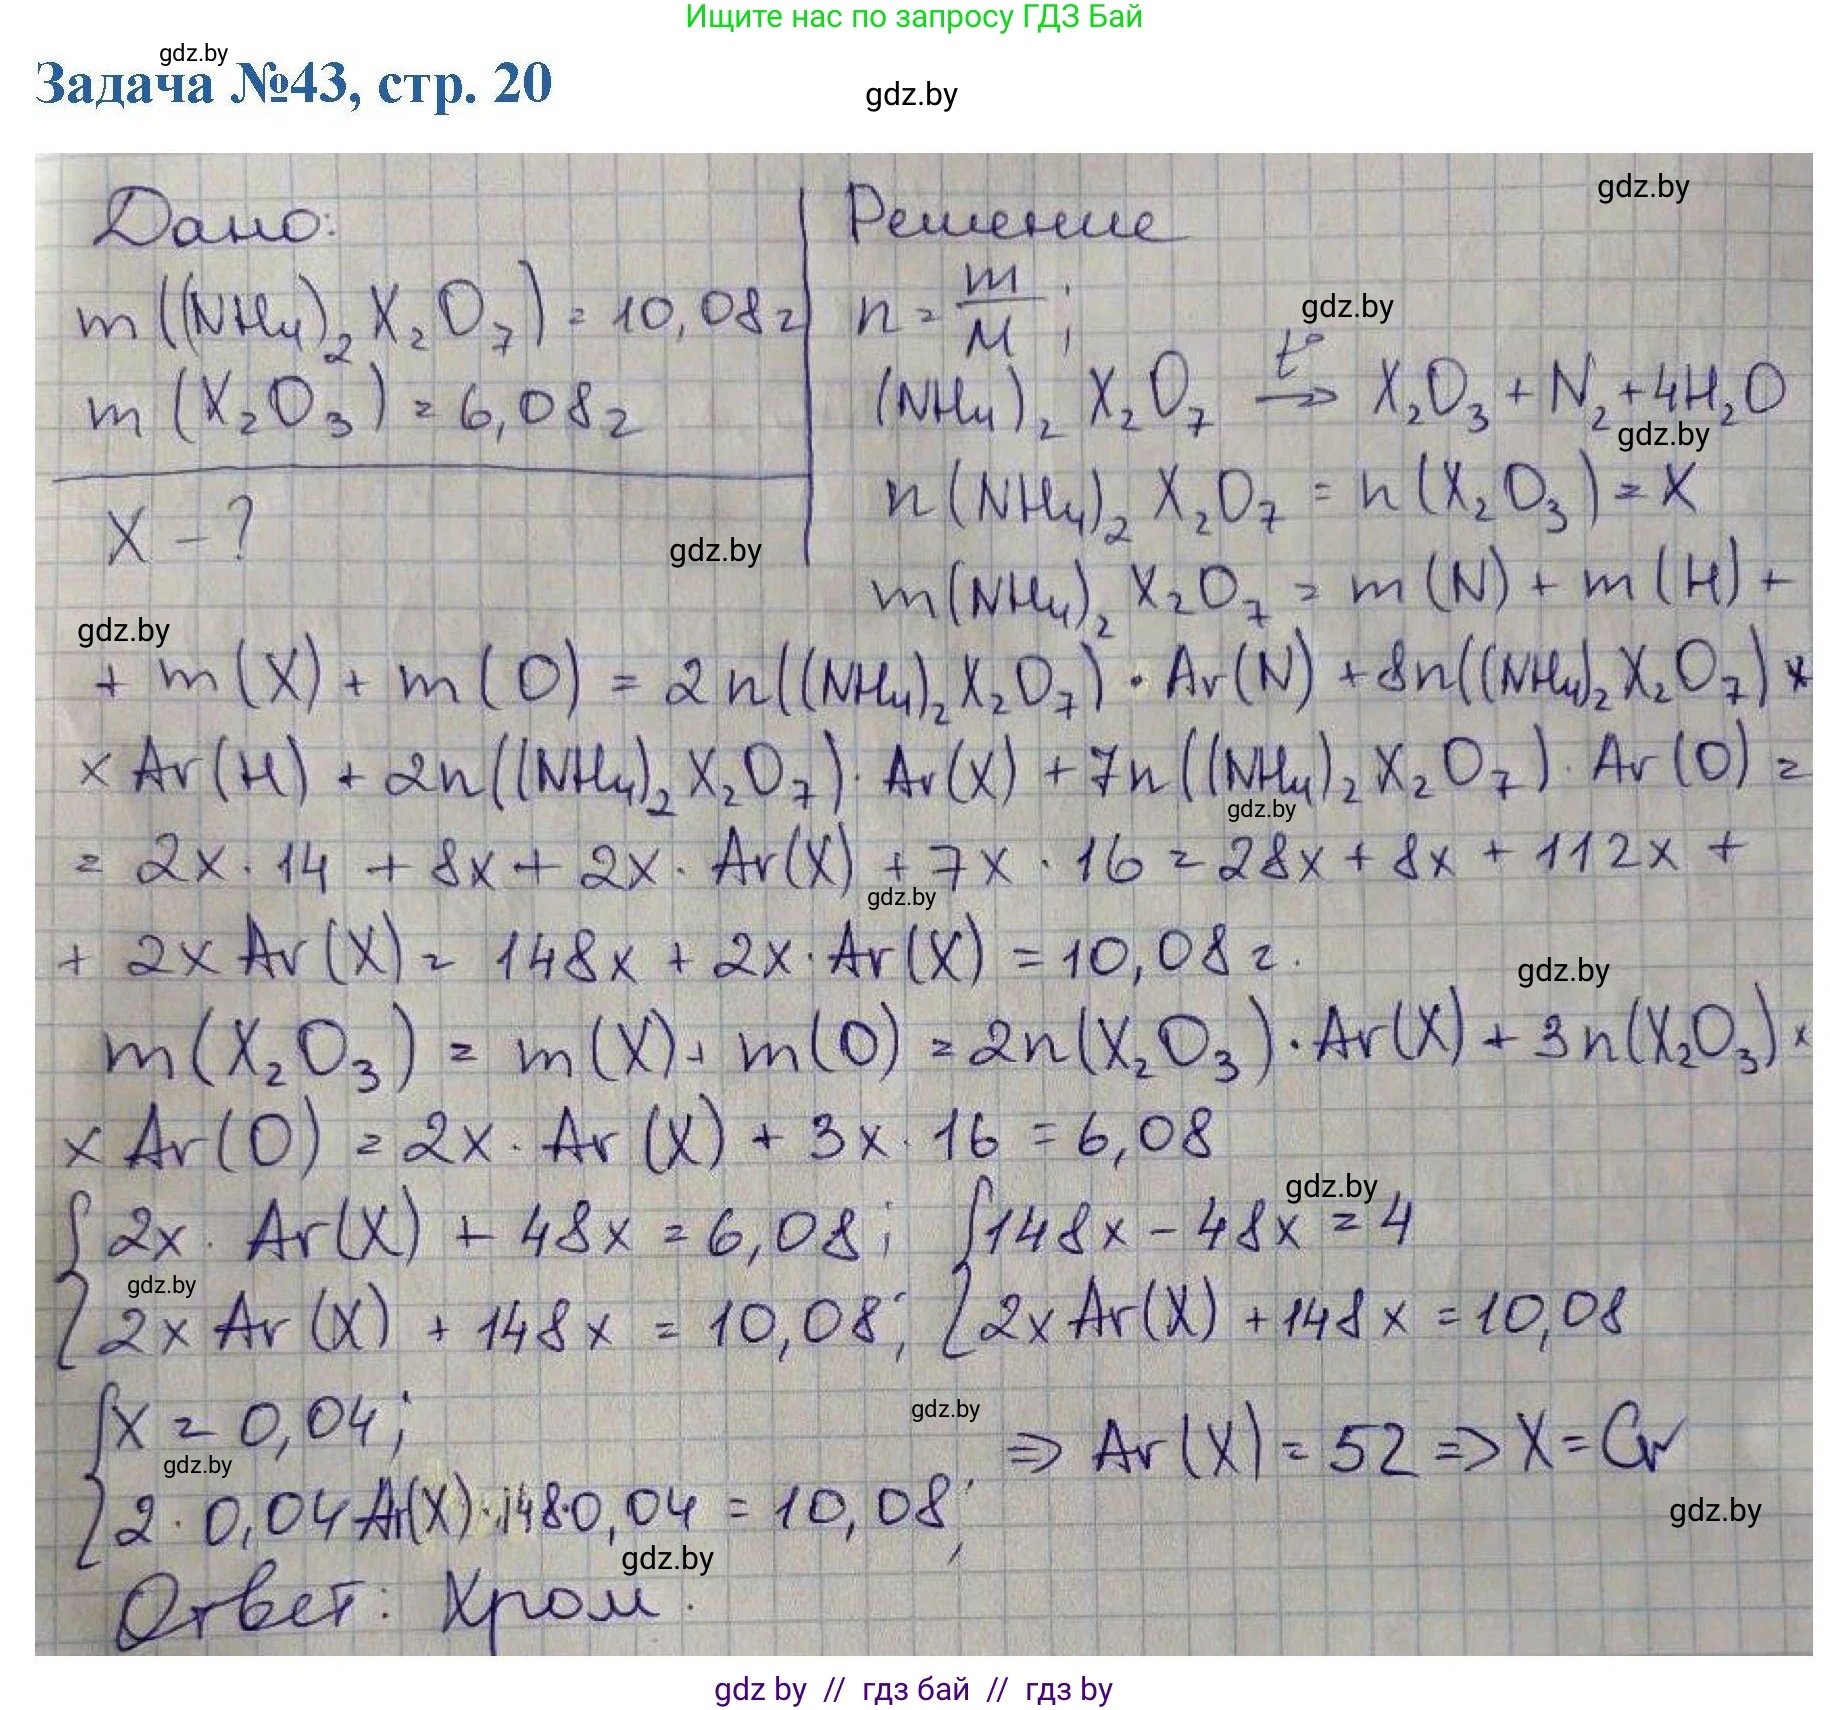 Ищите нас по запросу ГДЗ Бай
gdz.by
Задача №43, стр. 20
gdz.by
gdz.by
Дано:
m((NH₄)₂X₂O₇) = 10,08г
m(X₂O₃) = 6,08г
X - ?
Решение
n = m/M;
gdz.by
(NH₄)₂X₂O₇ t°→ X₂O₃ + N₂ + 4H₂O
gdz.by
n(NH₄)₂X₂O₇ = n(X₂O₃) = X
gdz.by
m(NH₄)₂X₂O₇ = m(N) + m(H) +
gdz.by
+ m(X) + m(O) = 2n((NH₄)₂X₂O₇) · Ar(N) + 8n((NH₄)₂X₂O₇) ×
× Ar(H) + 2n((NH₄)₂X₂O₇) · Ar(X) + 7n((NH₄)₂X₂O₇) · Ar(O) =
gdz.by
= 2x · 14 + 8x + 2x · Ar(X) + 7x · 16 = 28x + 8x + 112x +
gdz.by
+ 2x Ar(X) = 148x + 2x · Ar(X) = 10,08г.
gdz.by
m(X₂O₃) = m(X) + m(O) = 2n(X₂O₃) · Ar(X) + 3n(X₂O₃) ×
× Ar(O) = 2x · Ar(X) + 3x · 16 = 6,08
gdz.by
{2x · Ar(X) + 48x = 6,08; {148x - 48x = 4
gdz.by
2x Ar(X) + 148x = 10,08; 2x Ar(X) + 148x = 10,08
{x = 0,04;
gdz.by
gdz.by
2 · 0,04 Ar(X) · 148·0,04 = 10,08;
⇒ Ar(X) = 52 ⇒ X = Cr
gdz.by
gdz.by
Ответ: Хром.
gdz by // гдз бай // гдз by